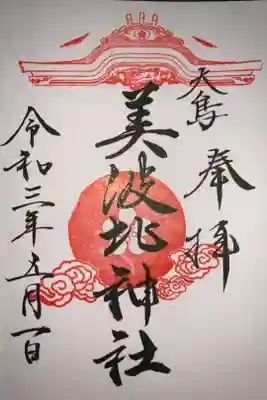 天島 奉拝
美波比神社
令和三年五月一日